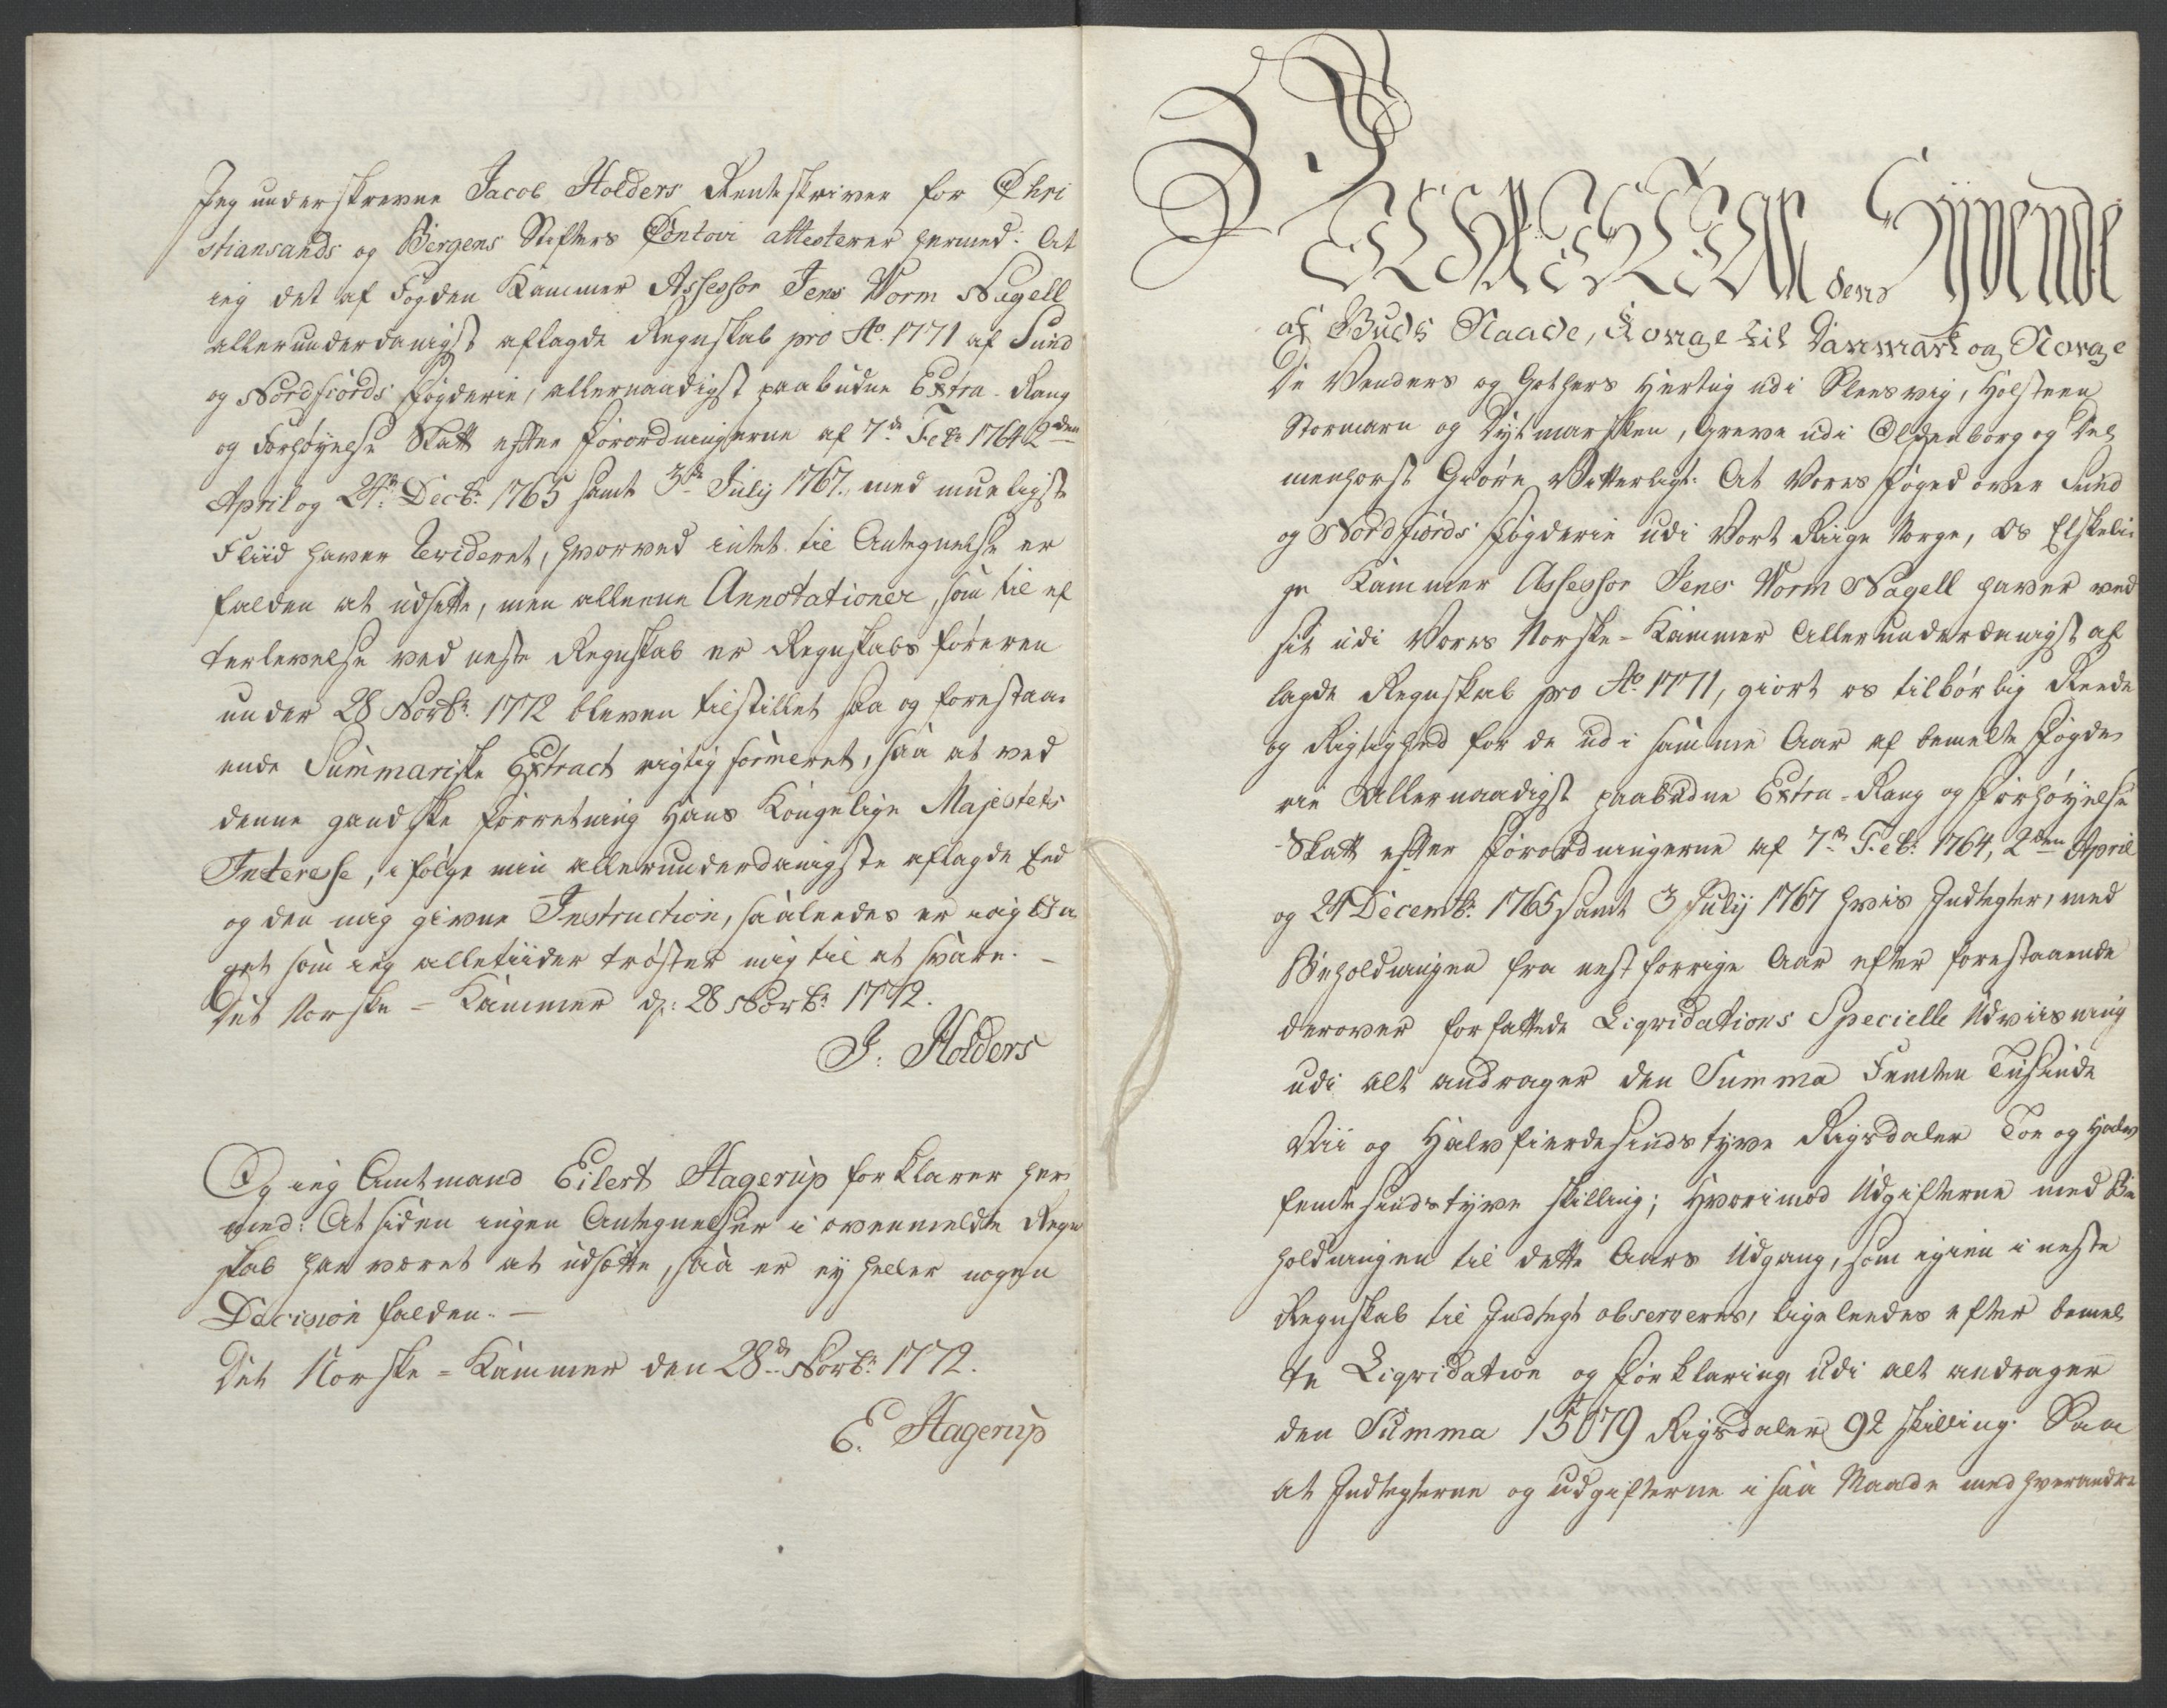 Jeg underskrevne Jacob Holders Renteskriver for Chri
stiansands og Bergens Stifters Contoir attesterer hermed: At
ieg det af Fogden Kammer Assessor Jens Worm Nagell
allerunderdanigst aflagde Regnskab pro Ao. 1771 af Sund
og Nordfiords Fogderie, allernaadigst paabudne Extra-Rang
og Forhøyelse Skatt efter Forordningerne af 7de Feb: 1764 2den
April og 24de Decb: 1765 samt 3de July 1767. med mueligste
Fliid haver Revideret, hvorved intet til Antegnelse er
falden at udsette, men alleene Annotationer, som til ef
terlevelse ved neste Regnskab er Regnskabs føreren
under 28 Novb: 1772 bleven tilstillet saa og forestaa-
ende Summariske Extract rigtig formeret, saa at ved
denne gandske Forretning Hans Kongelige Majestets
Interesse, i følge min allerunderdanigste aflagde Eed
og den mig givne Instruction, saaleedes er iagtta
get som ieg alletiider trøster mig til at svare. –
Det Norske-Kammer d: 28 Novb: 1772.
J. Holders
Og ieg Amtmand Eilert Hagerup forklarer her
med: At siden ingen Antegnelser i ovenmeldte Regn
skab har været at udsætte, saa er ey heller nogen
Decision falden. –
Det Norske-Kammer den 28de Novb: 1772.
E. Hagerup
CHRISTIAN den Syvende
af Guds Naade, Konge til Danmark og Norge
De Venders og Gothers Hertug udi Slesvig, Holsteen
Stormarn og Dytmarsken, Greve udi Oldenborg og Del
menhorst Giøre Vitterligt: At Vores Foged over Sund
og Nordfiords Fogderie udi Vort Riige Norge, Os Elskeli-
ge Kammer Assessor Jens Worm Nagell haver ved
sit udi Vores Norske-Kammer Allerunderdanigst af
lagde Regnskab pro Ao. 1771, giort os tilbørlig Reede
og Rigtighed for de udi samme Aar af bemelte Fogde
rie Allernaadigst paabudne Extra-Rang og Forhøyelse
Skatt efter Forordningerne af 7de Feb: 1764, 2den April
og 24 Decemb: 1765 samt 3 Julij 1767 hvis Indtegter, med
Beholdningen fra nest forrige Aar efter forestaaende
derover forfattede Liqvidations Specielle Udviisning
udi alt andrager den Summa Femten Tusinde
Nii og Halvfierdesindstyve Rigsdaler Toe og Halv
femtesindstyve skilling; Hvorimod Udgifterne med Be
holdningen til dette Aars Udgang, som igien i neste
Regnskab til Indtegt observeres, ligeleedes efter bemel
te Liqvidation og Forklaring, udi alt andrager
den Summa 15079 Rigsdaler 92 skilling. Saa
at Indtegterne og Udgifterne i saa Maade med hverandre